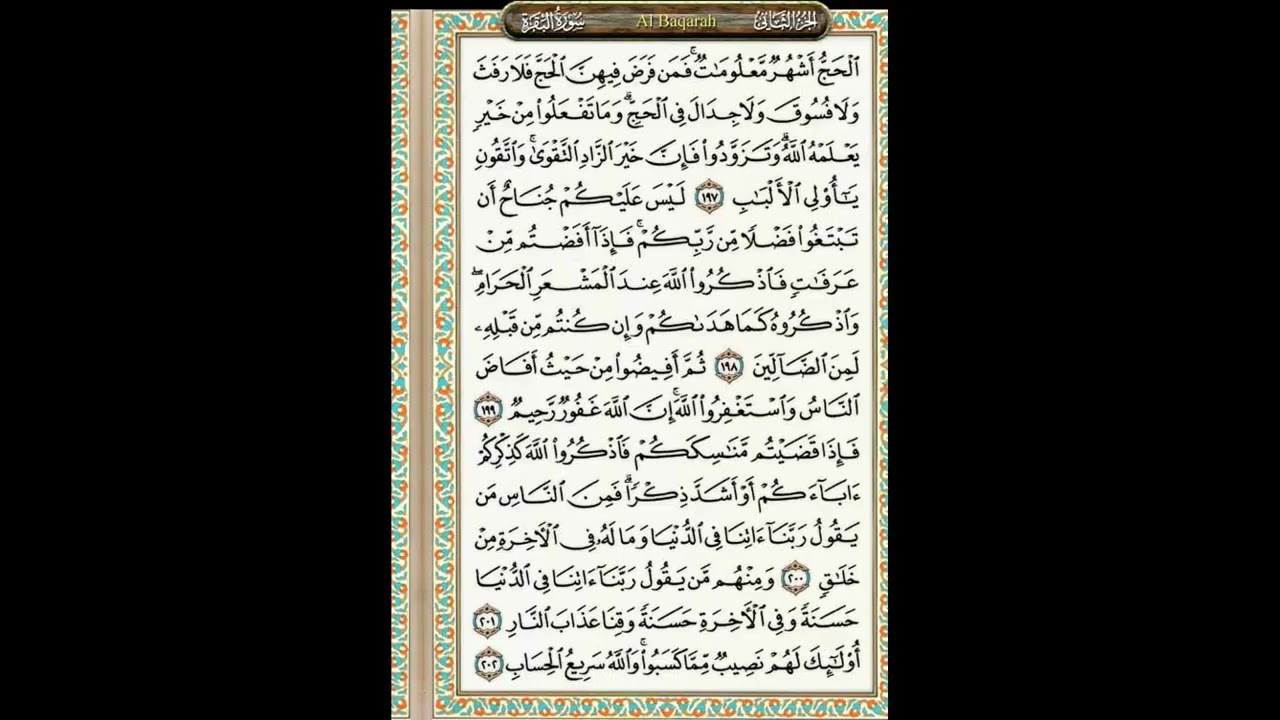 سُورَةُ البَقَرَةِ Al Baqarah الجُزءُ الثَّانِي
ٱلْحَجُّ أَشْهُرٌ مَّعْلُومَٰتٌ ۚ فَمَن فَرَضَ فِيهِنَّ ٱلْحَجَّ فَلَا رَفَثَ
وَلَا فُسُوقَ وَلَا جِدَالَ فِى ٱلْحَجِّ ۗ وَمَا تَفْعَلُوا۟ مِنْ خَيْرٍ
يَعْلَمْهُ ٱللَّهُ ۗ وَتَزَوَّدُوا۟ فَإِنَّ خَيْرَ ٱلزَّادِ ٱلتَّقْوَىٰ ۚ وَٱتَّقُونِ
يَٰٓأُو۟لِى ٱلْأَلْبَٰبِ ١٩٧ لَيْسَ عَلَيْكُمْ جُنَاحٌ أَن
تَبْتَغُوا۟ فَضْلًا مِّن رَّبِّكُمْ ۚ فَإِذَآ أَفَضْتُم مِّنْ
عَرَفَٰتٍ فَٱذْكُرُوا۟ ٱللَّهَ عِندَ ٱلْمَشْعَرِ ٱلْحَرَامِ ۖ
وَٱذْكُرُوهُ كَمَا هَدَىٰكُمْ وَإِن كُنتُم مِّن قَبْلِهِۦ
لَمِنَ ٱلضَّآلِّينَ ١٩٨ ثُمَّ أَفِيضُوا۟ مِنْ حَيْثُ أَفَاضَ
ٱلنَّاسُ وَٱسْتَغْفِرُوا۟ ٱللَّهَ ۚ إِنَّ ٱللَّهَ غَفُورٌ رَّحِيمٌ ١٩٩
فَإِذَا قَضَيْتُم مَّنَٰسِكَكُمْ فَٱذْكُرُوا۟ ٱللَّهَ كَذِكْرِكُمْ
ءَابَآءَكُمْ أَوْ أَشَدَّ ذِكْرًا ۗ فَمِنَ ٱلنَّاسِ مَن
يَقُولُ رَبَّنَآ ءَاتِنَا فِى ٱلدُّنْيَا وَمَا لَهُۥ فِى ٱلْءَاخِرَةِ مِنْ
خَلَٰقٍ ٢٠٠ وَمِنْهُم مَّن يَقُولُ رَبَّنَآ ءَاتِنَا فِى ٱلدُّنْيَا
حَسَنَةً وَفِى ٱلْءَاخِرَةِ حَسَنَةً وَقِنَا عَذَابَ ٱلنَّارِ ٢٠١
أُو۟لَٰٓئِكَ لَهُمْ نَصِيبٌ مِّمَّا كَسَبُوا۟ ۚ وَٱللَّهُ سَرِيعُ ٱلْحِسَابِ ٢٠٢